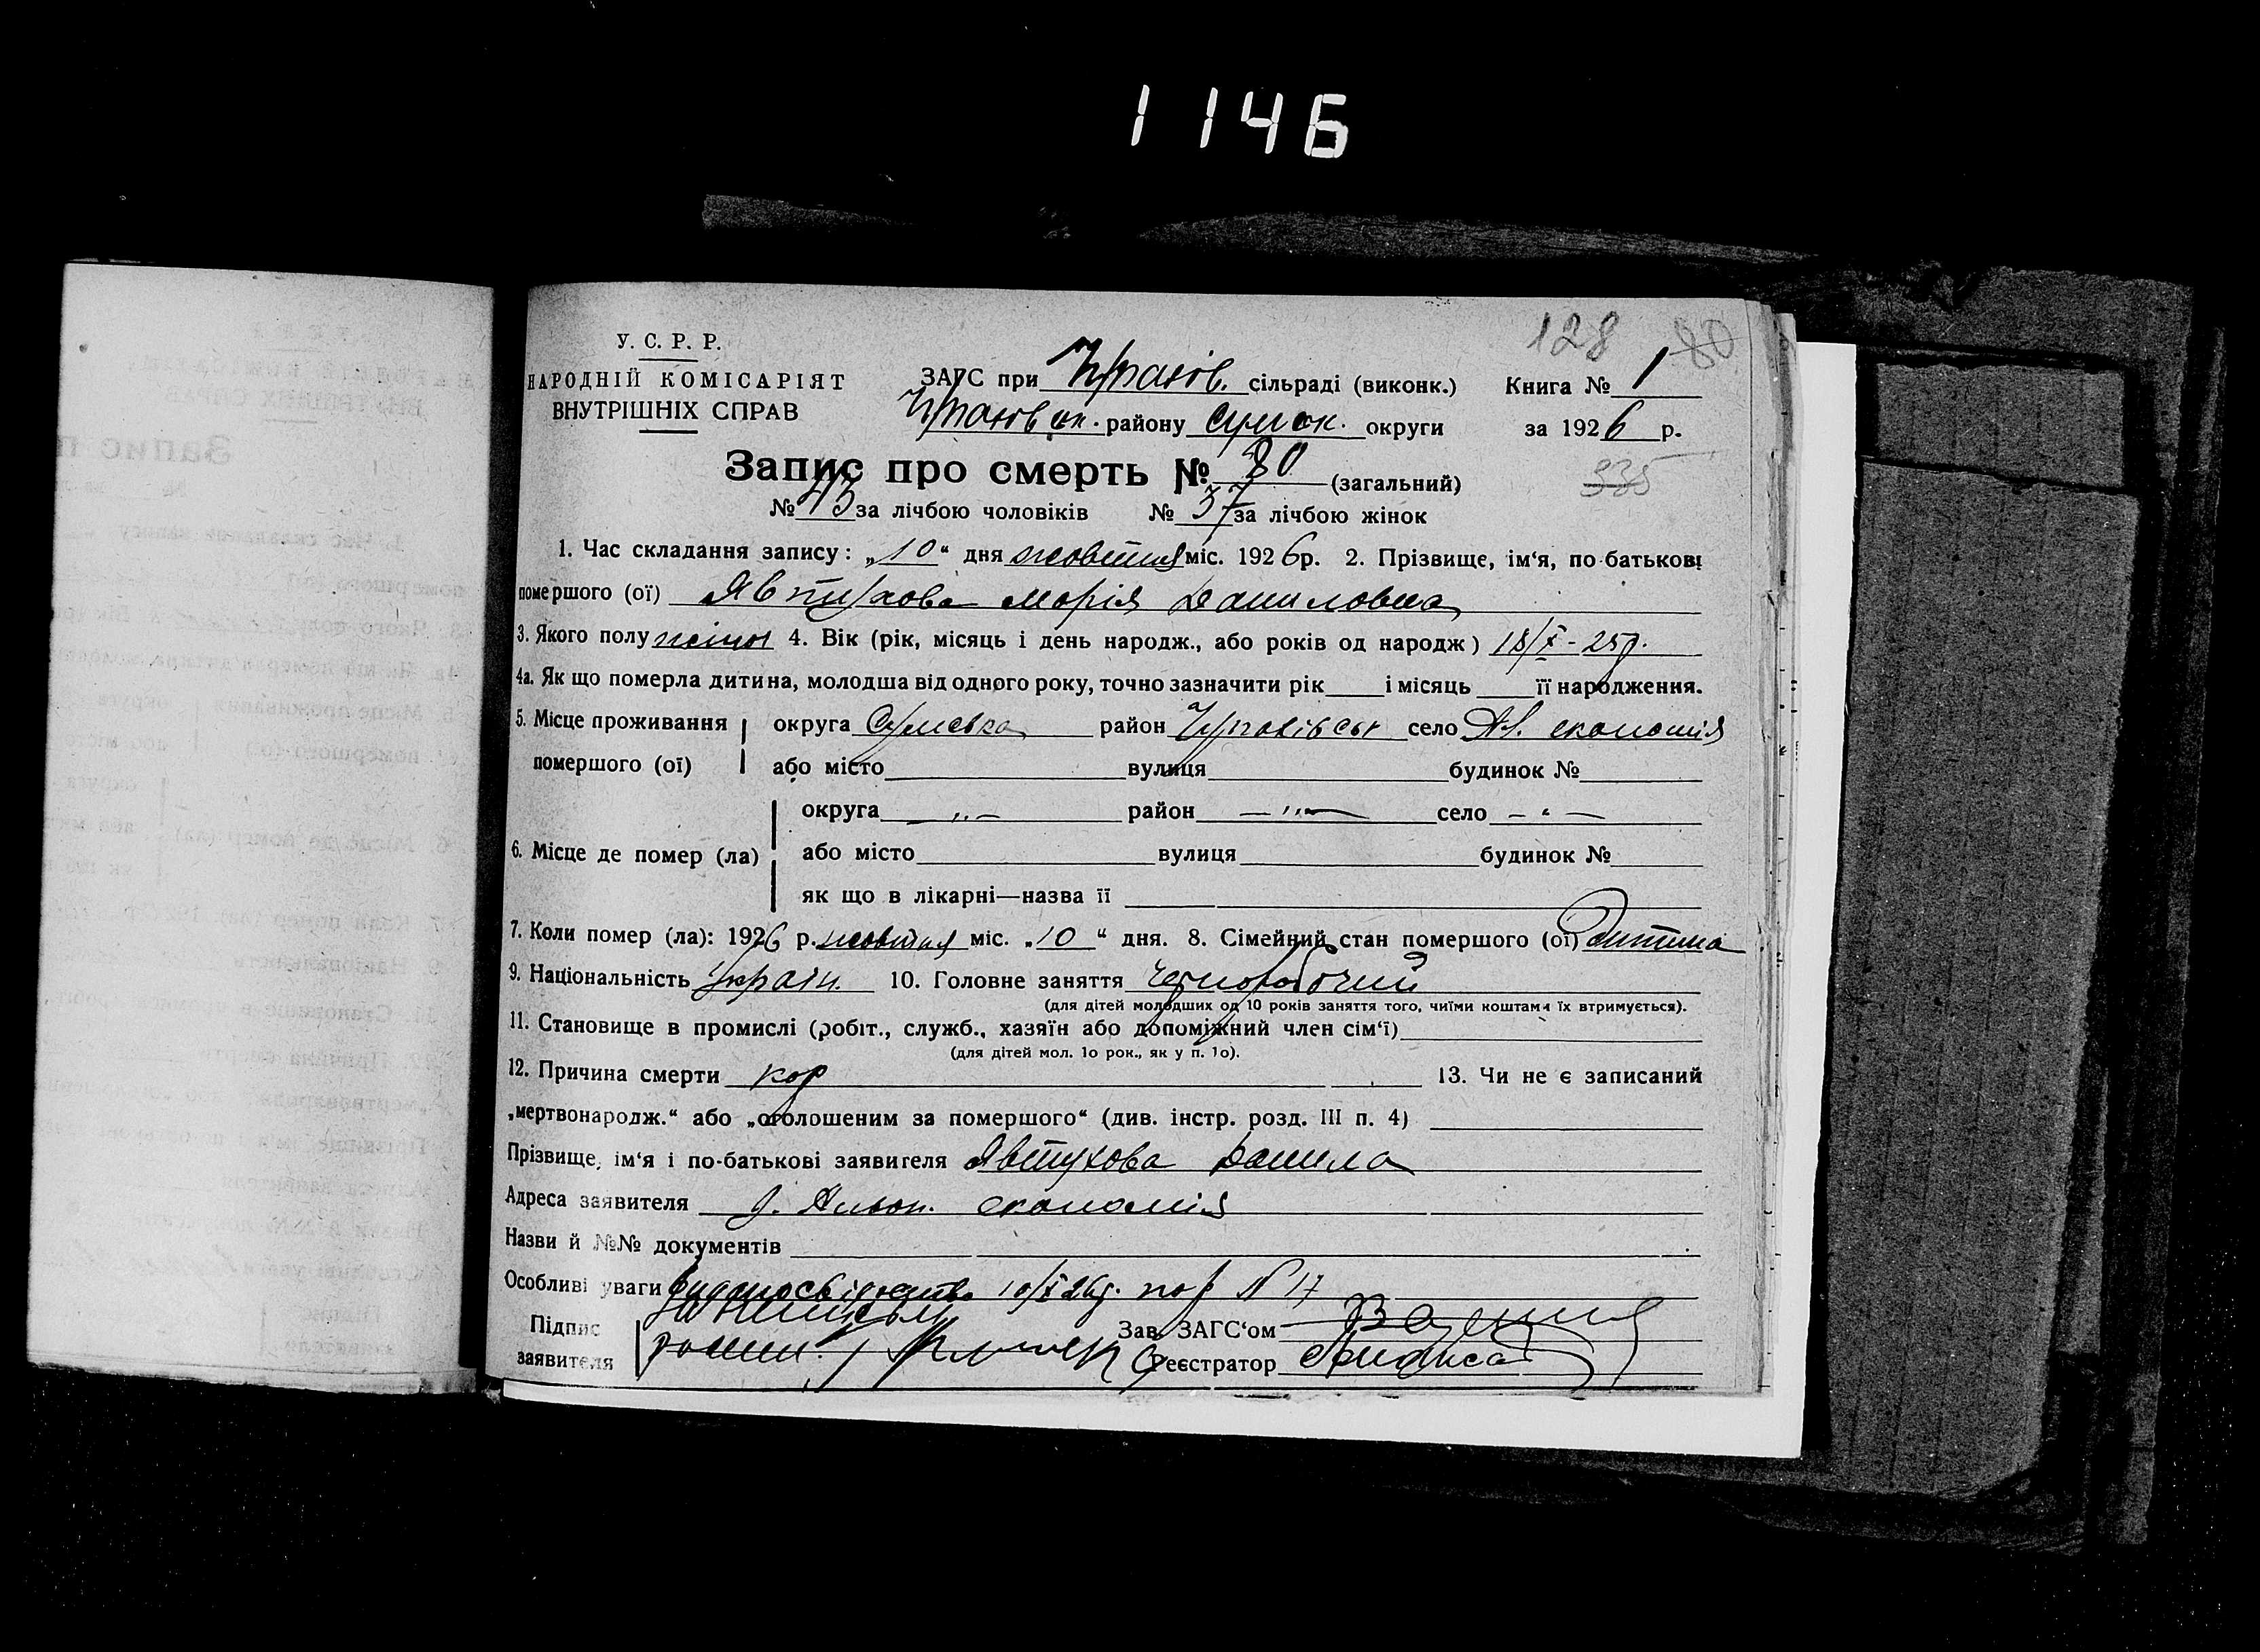 1146
128 80
У. С. Р. Р.
НАРОДНІЙ КОМІСАРІЯТ
ВНУТРІШНІХ СПРАВ
ЗАГС при сільраді (виконк.) Книга № 1
району Сумск. округи за 1926 р.
335
Запис про смерть № 80 (загальний)
№ 43 за лічбою чоловіків № 37 за лічбою жінок
1. Час складання запису: „10“ дня жовтня міс. 1926 р. 2. Прізвище, ім‘я, по-батькові
помершого (ої) Явтухова Марія Даниловна
3. Якого полу жіноч 4. Вік (рік, місяць і день народж., або років од народж) 18/X - 25р.
4а. Як що померла дитина, молодша від одного року, точно зазначити рік і місяць її народження.
5. Місце проживання округа Сумська район село економія
помершого (ої) або місто вулиця будинок №
округа „ — район — „ — село — „ —
6. Місце де помер (ла) або місто вулиця будинок №
як що в лікарні—назва її
7. Коли помер (ла): 1926 р. жовтня міс. „10“ дня. 8. Сімейний стан помершого (ої) Дитина
9. Національність україн. 10. Головне заняття Чернорабочий
(для дітей молодших од 10 років заняття того, чиїми коштами їх втримується).
11. Становище в промислі (робіт., служб., хазяїн або допоміжний член сім‘ї)
(для дітей мол. 10 рок., як у п. 10).
12. Причина смерти кор 13. Чи не є записаний
„мертвонародж.“ або „оголошеним за помершого“ (див. інстр. розд. III п. 4)
Прізвище, ім‘я і по-батькові заявителя Явтухова Данила
Адреса заявителя економія
Назви й №№ документів
Особливі уваги 10/X 26р. № 17
Підпис Зав. ЗАГС‘ом
заявителя Реєстратор